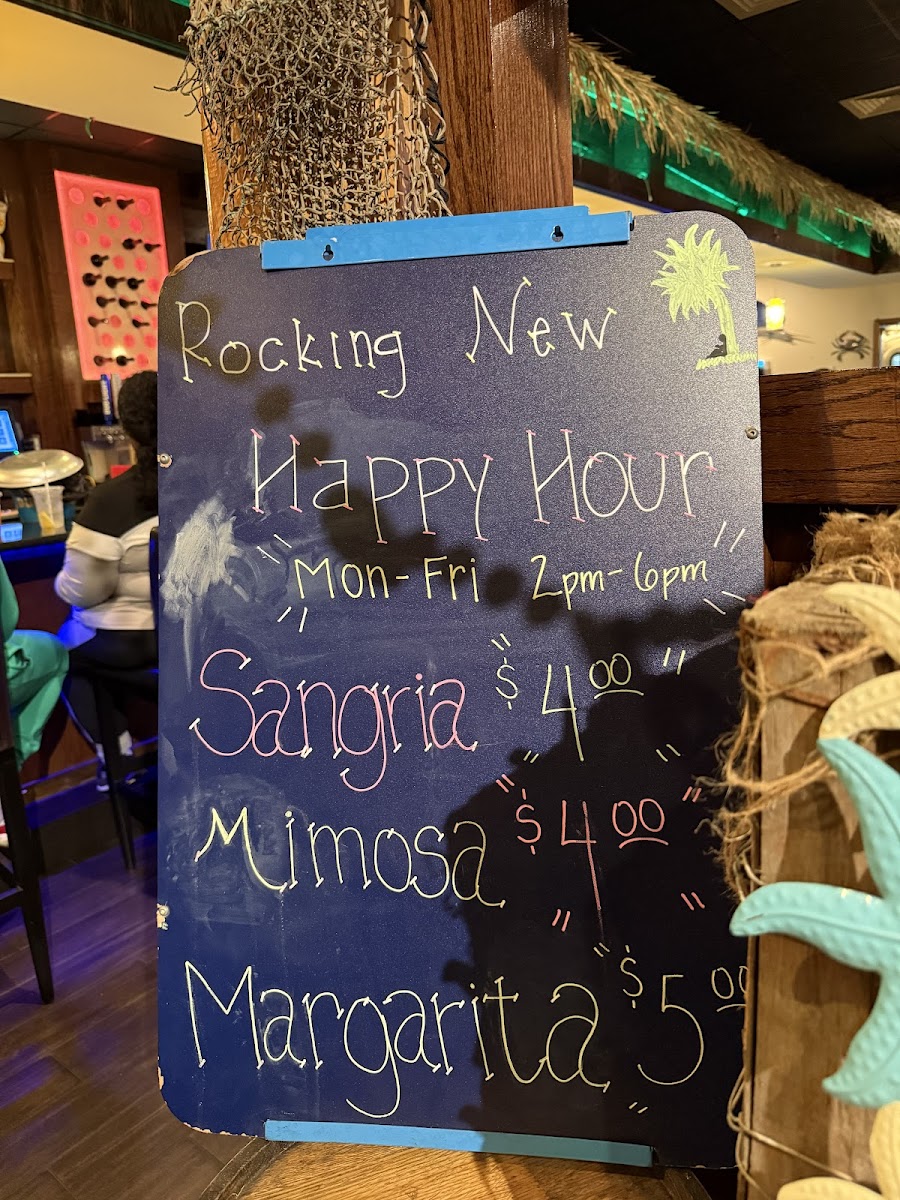 Rocking New
Happy Hour
Mon-Fri 2pm-6pm
Sangria $4.00
Mimosa $4.00
Margarita $5.00